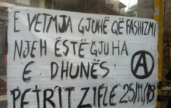 E VETMJA GJUHË QË FASHIZMI
NJEH ËSTË GJUHA
E DHUNËS: A
PETRIT ZIFLE 25/11/18